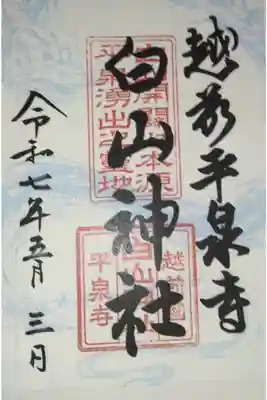 越前平泉寺
白山神社
令和七年五月三日
平泉涌出之霊地
越前國
白山
平泉寺